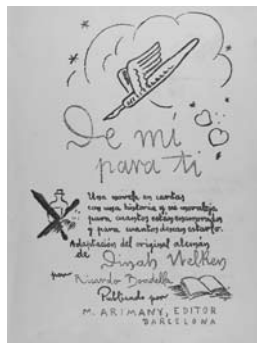 De mí
para ti
Una novela en cartas
con una historia y su moraleja
para cuantos están enamorados
y para cuantos desean estarlo.
Adaptación del original alemán
de Dinah Nelken
por Ricardo Bondella
Publicado por
M. ARIMANY, EDITOR
BARCELONA